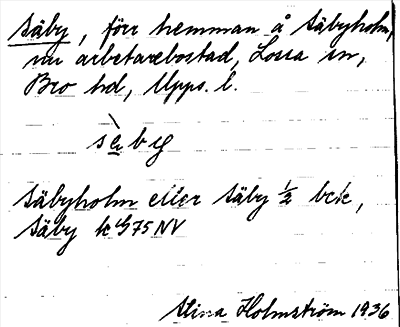 Säby, förr hemman å Säbyholm,
nu arbetarebostad, Lossa sn,
Bro hd, Upps. l.
sèby
Säbyholm eller Säby ½ bck,
Säby k G75 NV
Stina Holmström 1936